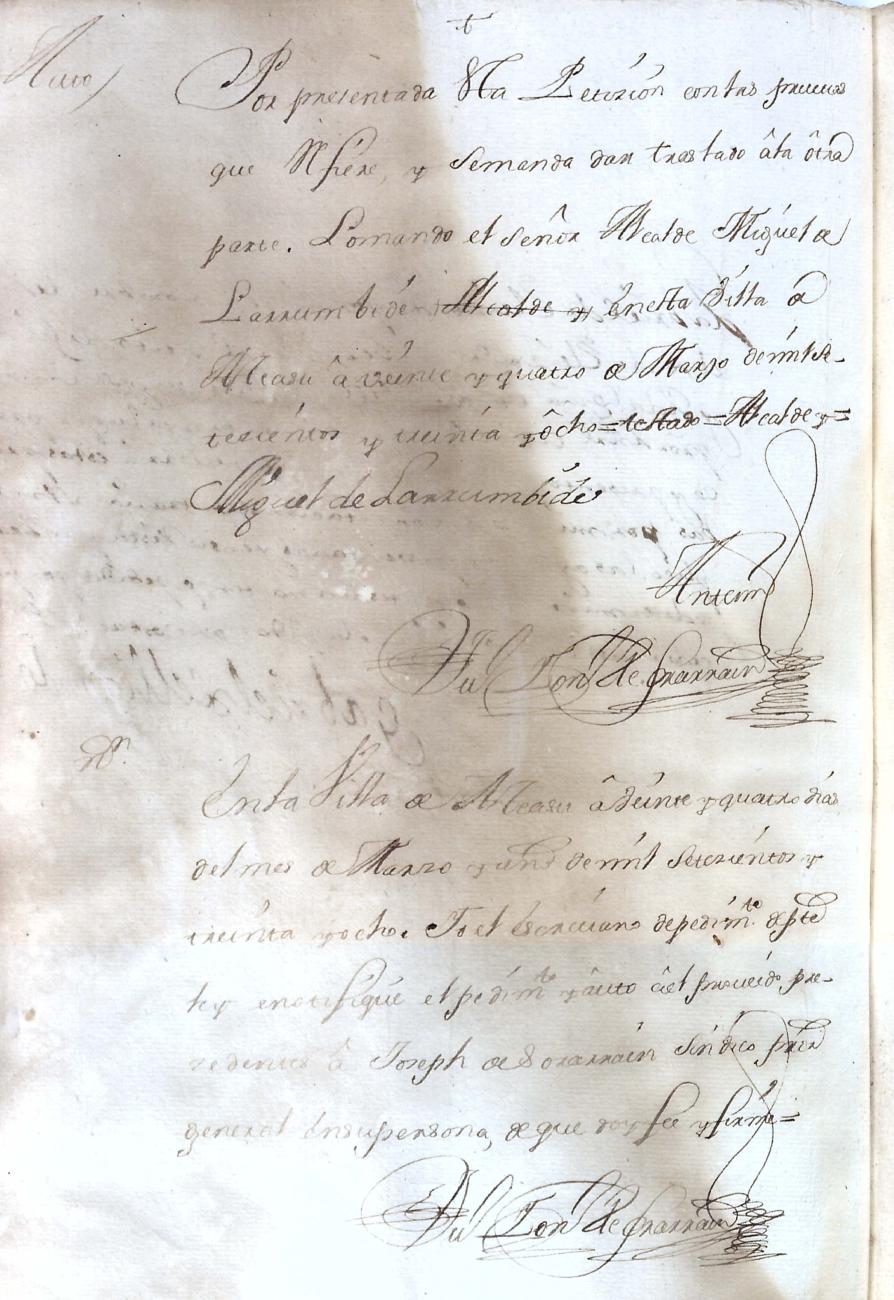 Auto
Por presentada esta Peticion con las preuias
que Refiere, y Semanda dar traslado âla ôtra
parte. Lomando el Señor Alcalde Miguel de
Larrumbide Alcalde y enesta Villa de
Alcasu â veinte y quatro de Marzo demil se-
tecientos y treinta y ôcho=testado=Alcalde y=
Miguel de Larrumbide
Antemi
En la Villa de Alcasu â veinte y quatro dias
del mes de Marzo y año demil Setezientos y
treinta y ocho. Yo el Escriuano depedimto departe
ley enotifiqué el pedimto y âuto âel proueido pre-
zedentes â Joseph de Sorarrain Sindico prior
general Ensupersona, de que doy fee y firmé=